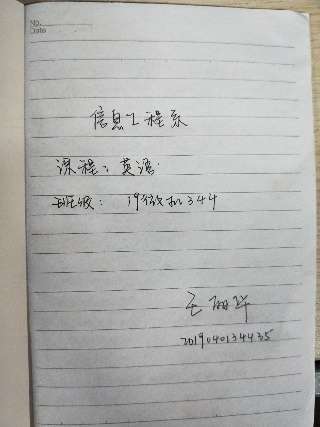 No.
Date
信息工程系
课程：英语
班级：19微机344
王丽华
2019040134435